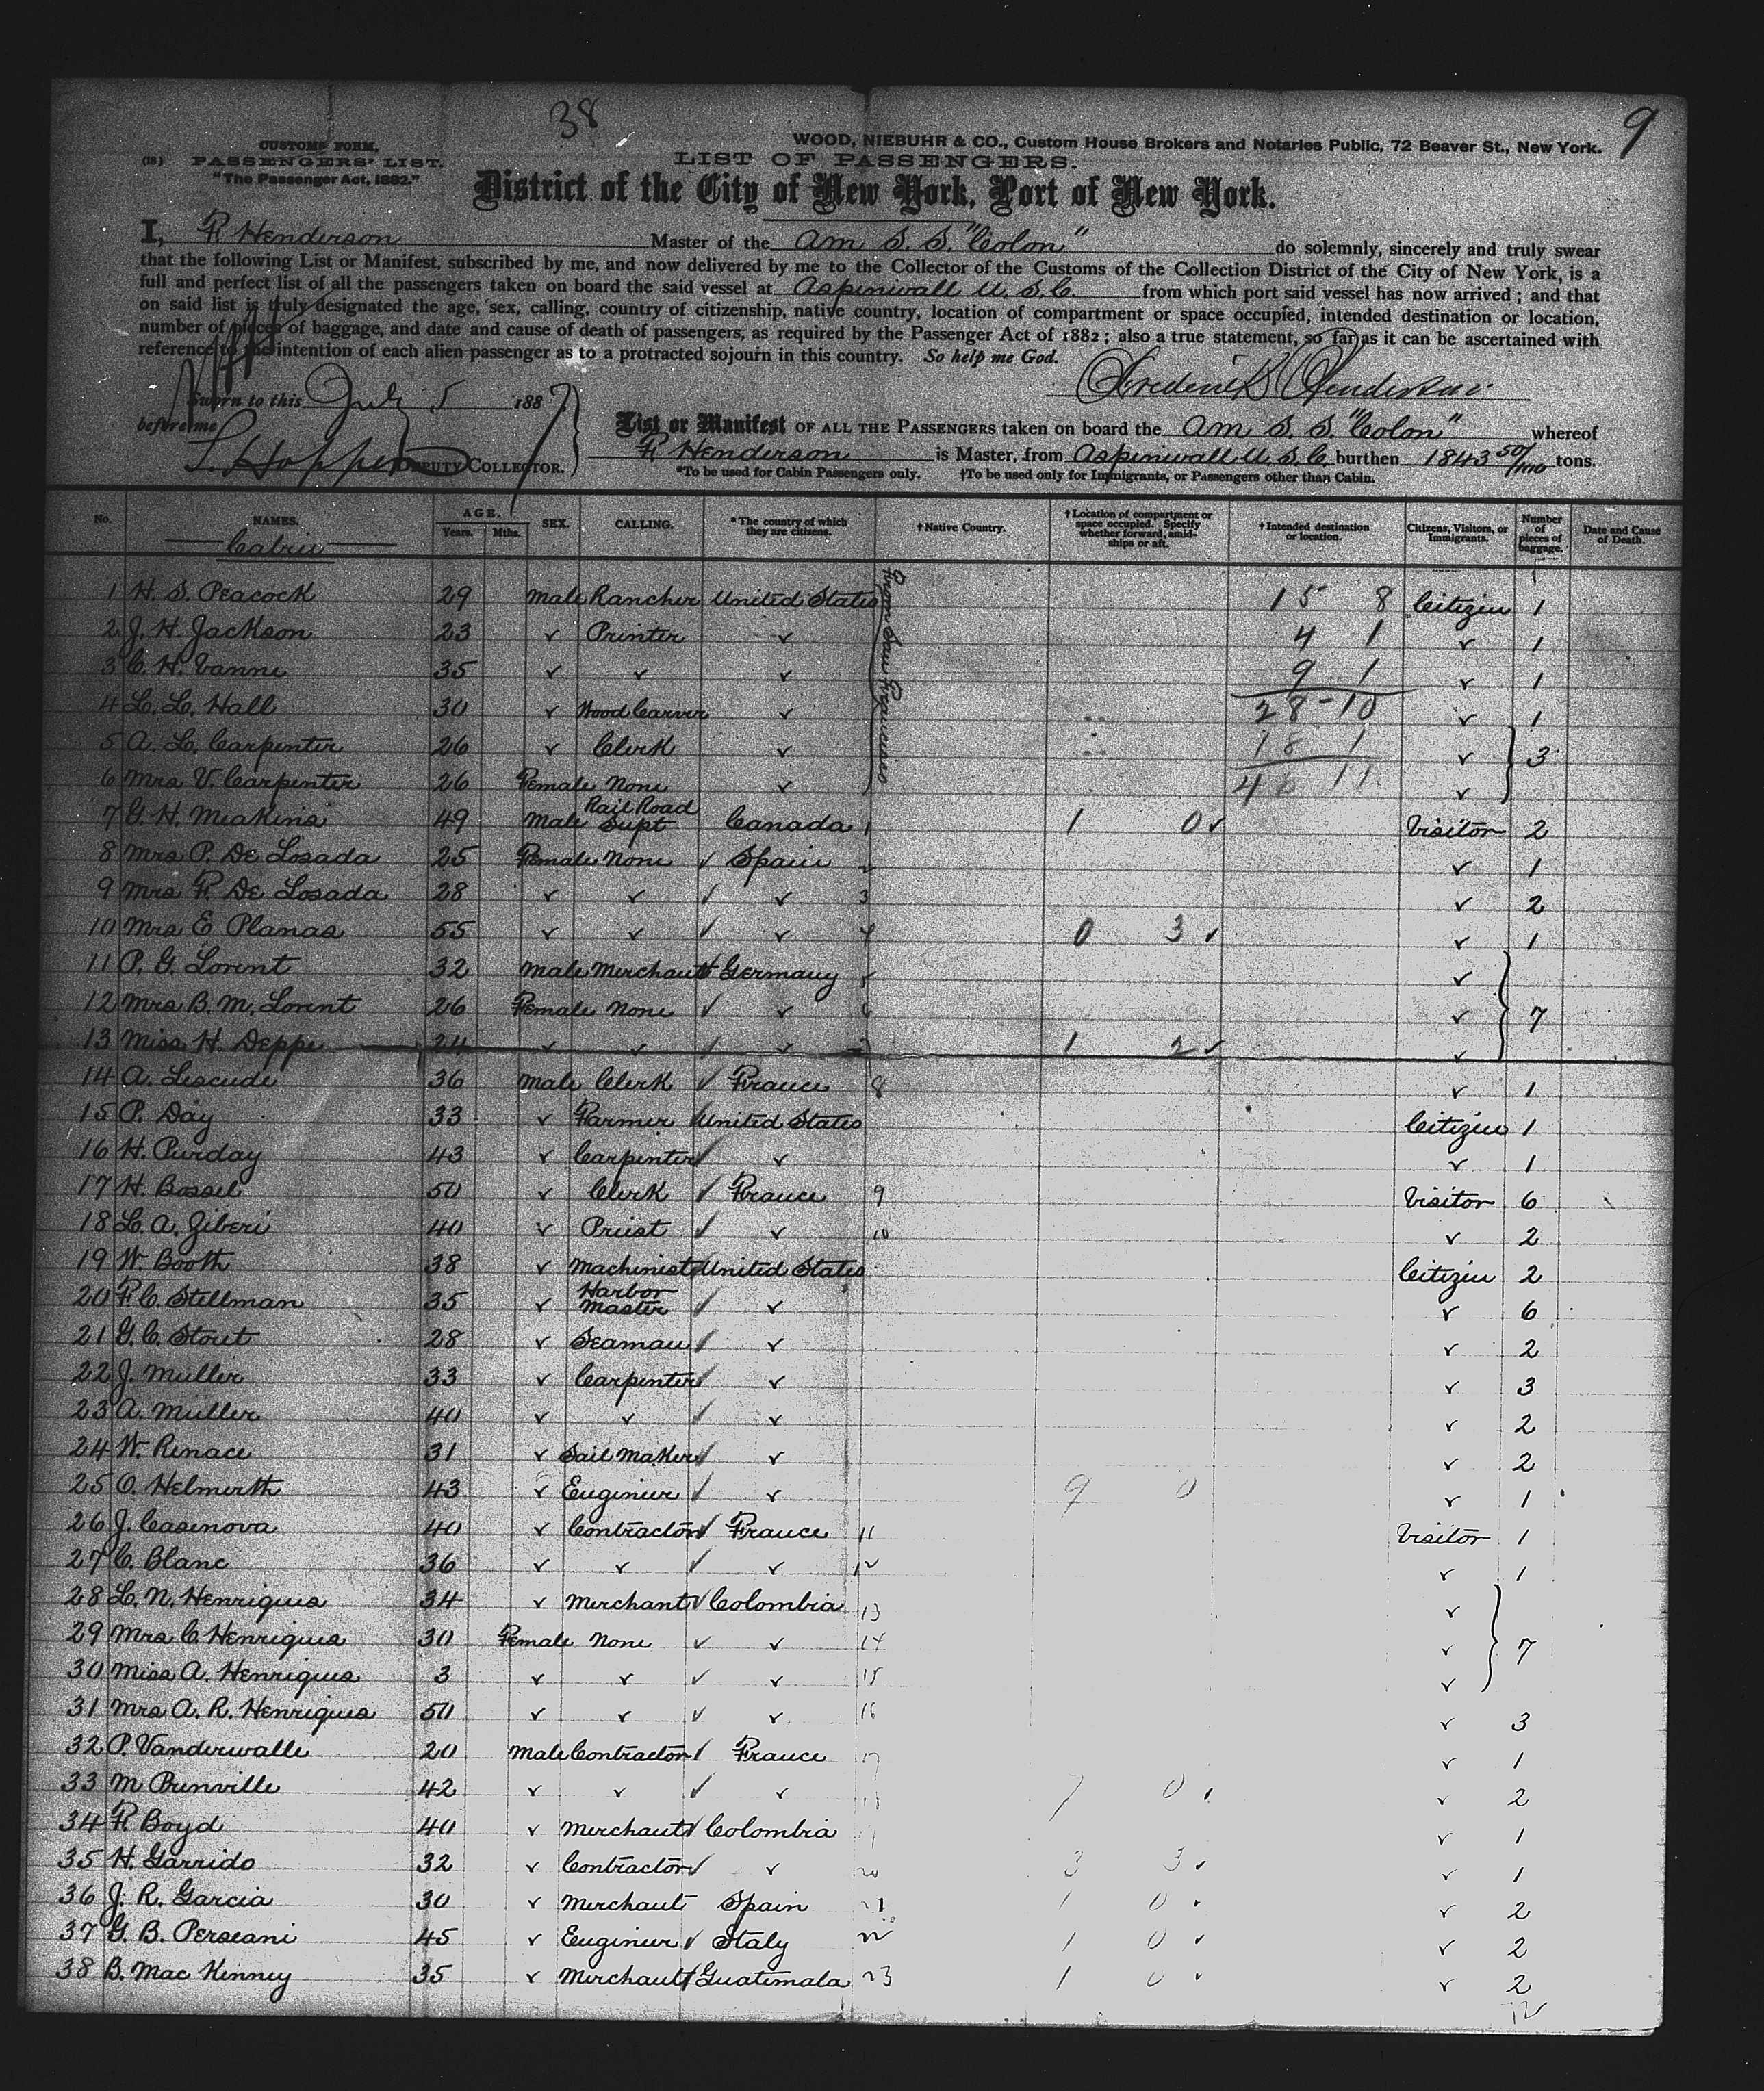 38
9
CUSTOMS FORM.
(18) PASSENGERS' LIST.
"The Passenger Act, 1882."
WOOD, NIEBUHR & CO., Custom House Brokers and Notaries Public, 72 Beaver St., New York.
LIST OF PASSENGERS.
District of the City of New York, Port of New York.
I, F. Henderson Master of the Am S. S. "Colon" do solemnly, sincerely and truly swear
that the following List or Manifest, subscribed by me, and now delivered by me to the Collector of the Customs of the Collection District of the City of New York, is a
full and perfect list of all the passengers taken on board the said vessel at Aspinwall U. S. C. from which port said vessel has now arrived; and that
on said list is truly designated the age, sex, calling, country of citizenship, native country, location of compartment or space occupied, intended destination or location,
number of pieces of baggage, and date and cause of death of passengers, as required by the Passenger Act of 1882; also a true statement, so far as it can be ascertained with
reference to the intention of each alien passenger as to a protracted sojourn in this country. So help me God.
Sworn to this July 5 1887 Frederick Henderson
before me
List or Manifest OF ALL THE PASSENGERS taken on board the Am S. S. "Colon" whereof
S. Hopper DEPUTY COLLECTOR.
F. Henderson is Master, from Aspinwall U. S. C. burthen 1843 50/100 tons.
*To be used for Cabin Passengers only. †To be used only for Immigrants, or Passengers other than Cabin.
No. NAMES. AGE. Years. Mths. SEX. CALLING. *The country of which they are citizens. †Native Country. †Location of compartment or space occupied. Specify whether forward, amidships or aft. †Intended destination or location. Citizens, Visitors, or Immigrants. Number of pieces of baggage. Date and Cause of Death.
Cabin
From San Francisco
1 H. S. Peacock 29 Male Rancher United States 15 8 Citizen 1
2 J. H. Jackson 23 ✓ Printer ✓ 4 1 ✓ 1
3 C. H. Vanne 35 ✓ ✓ ✓ 9 1 ✓ 1
4 L. L. Hall 30 ✓ Wood Carver ✓ 28-10 ✓ 1
5 A. L. Carpenter 26 ✓ Clerk ✓ 18 1 ✓ 3
6 Mrs V. Carpenter 26 Female None ✓ 46 11 ✓
7 G. H. Meakins 49 Male Rail Road Supt Canada 1 1 0 ✓ Visitor 2
8 Mrs P. De Losada 25 Female None ✓ Spain 2 ✓ 1
9 Mrs F. De Losada 28 ✓ ✓ ✓ ✓ 3 ✓ 2
10 Mrs E Planas 55 ✓ ✓ ✓ ✓ 4 0 3 ✓ ✓ 1
11 P. G. Lorent 32 Male Merchant ✓ Germany 5 ✓
12 Mrs B. M. Lorent 26 Female None ✓ ✓ 6 ✓ 7
13 Miss H. Deppe 24 ✓ ✓ ✓ ✓ 7 1 2 ✓ ✓
14 A. Lescude 36 Male Clerk ✓ France 8 ✓ 1
15 P. Day 33 ✓ Farmer ✓ United States Citizen 1
16 H. Purday 43 ✓ Carpenter ✓ ✓ ✓ 1
17 H. Bossel 50 ✓ Clerk ✓ France 9 Visitor 6
18 L. A. Ziberi 40 ✓ Priest ✓ ✓ 10 ✓ 2
19 W. Booth 38 ✓ Machinist ✓ United States Citizen 2
20 F. C. Stellman 35 ✓ Harbor Master ✓ ✓ ✓ 6
21 G. C. Stout 28 ✓ Seaman ✓ ✓ ✓ 2
22 J. Muller 33 ✓ Carpenter ✓ ✓ ✓ 3
23 A. Muller 40 ✓ ✓ ✓ ✓ ✓ 2
24 W. Renace 31 ✓ Sail Maker ✓ ✓ ✓ 2
25 O. Helmerth 43 ✓ Enginier ✓ ✓ 9 0 ✓ 1
26 J. Casinova 40 ✓ Contractor ✓ France 11 Visitor 1
27 C. Blanc 36 ✓ ✓ ✓ ✓ 12 ✓ 1
28 L. N. Henriques 34 ✓ Merchant ✓ Colombia 13 ✓
29 Mrs C. Henriques 30 Female None ✓ ✓ 14 ✓ 7
30 Miss A. Henriques 3 ✓ ✓ ✓ ✓ 15 ✓
31 Mrs A. R. Henriques 50 ✓ ✓ ✓ ✓ 16 ✓ 3
32 P. Vanderwalle 20 Male Contractor ✓ France 17 ✓ 1
33 M Prunville 42 ✓ ✓ ✓ ✓ 18 7 0 ✓ 2
34 F. Boyd 40 ✓ Merchant ✓ Colombia 19 ✓ 1
35 H. Garrido 32 ✓ Contractor ✓ ✓ 20 3 3 ✓ ✓ 1
36 J. R. Garcia 30 ✓ Merchant Spain 21 1 0 ✓ 2
37 G. B. Perseani 45 ✓ Enginier ✓ Italy 22 1 0 ✓ ✓ 2
38 B. Mac Kenney 35 ✓ Merchant ✓ Guatemala 23 1 0 ✓ ✓ 2